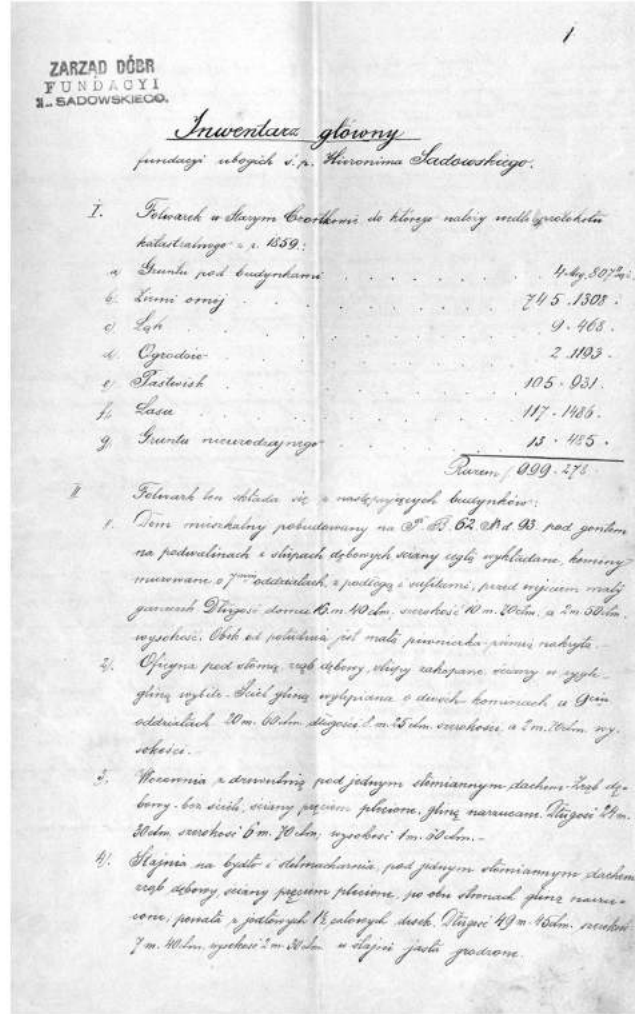 1
ZARZĄD DÓBR
FUNDACYI
H. SADOWSKIEGO.
Inwentarz główny
fundacyi ubogich ś.p. Hieronima Sadowskiego.
I. Folwarek w Starym Czortkowie do którego należy wedle protokołu
katastralnego z r. 1859.:
a Gruntu pod budynkami . . . . . . 4 mg. 807
b. Ziemi ornej . . . . . . 745.1308.
c) Łąk . . . . . . 9.468.
d. Ogrodów . . . . . . 2.1193.
e) Pastwisk . . . . . . 105.931.
f. Lasu . . . . . . 117.1486.
g. Gruntu nieurodzajnego . . . . . . 13.485.
Razem / 999.278.
II Folwark ten składa się z następujących budynków:
1. Dom mieszkalny pobudowany na P. B. 62 Nd. 93. pod gontem
na podwalinach i słupach dębowych ściany cegłą wykładane, kominy
murowane o 7miu oddziałach, z podłogą i sufitami, przed wejściem mały
ganeczek Długość domu 16 m. 40 ctm. szerokość 10 m. 20 ctm. a 2 m. 50 ctm.
wysokość. Obok od południa jest mała piwniczka ziemią nakryta.-
2/. Oficyna pod słomą, zrąb dębowy, słupy zakopane, ściany w
gliną wybite - gliną wylepiona o dwóch kominach, a 9ciu
oddziałach 20 m. 60 ctm. długości m. 25 ctm. szerokości, a 2 m. 70 ctm. wy-
sokości.-
3. Wozownia z drewutnią pod jednym słomiannym dachem - Zrąb dę-
bowy - bez ścieli, ściany pręciem plecione, gliną narzucane. Długość 24 m.
30 ctm, szerokość 6 m. 70 ctm, wysokość 1 m. 50 ctm.-
4/. Stajnia na bydło i stelmacharnia, pod jednym słomiannym dachem
zrąb dębowy, ściany pręciem plecione, po obu stronach gliną narzu-
cone, powała z jodłowych 1½ calowych desek. Długość 49 m. 45 ctm. szerokość
7 m. 40 ctm, wysokość 2 m. 30 ctm. w stajni jasła grodzone.